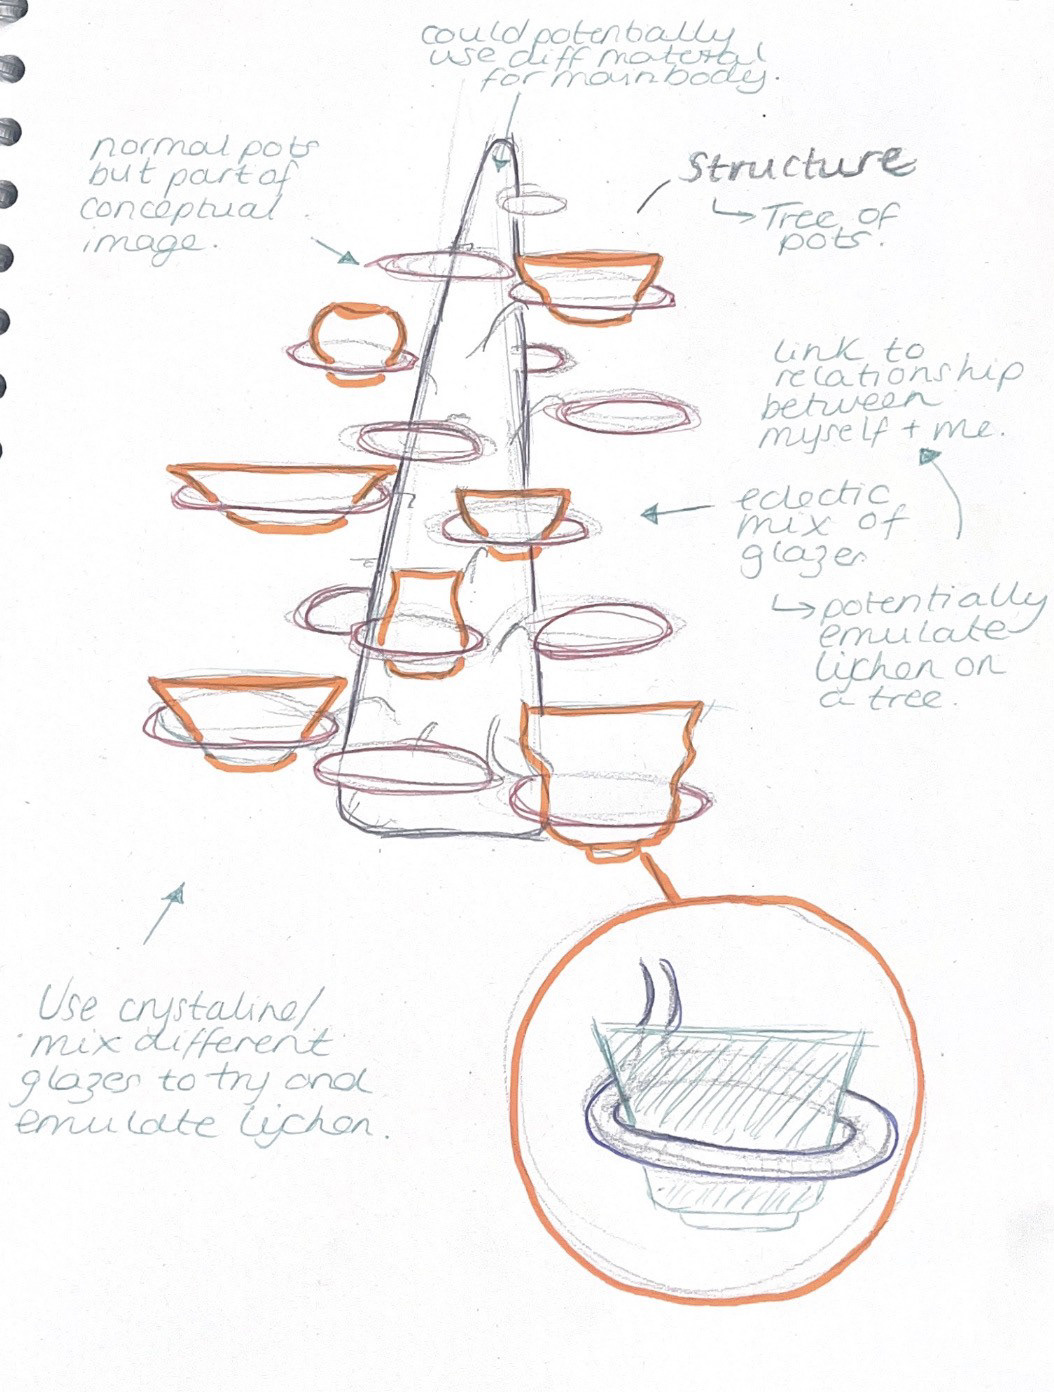 could potentially
use diff material
for main body.
normal pots
but part of
conceptual
image.
Structure
↳ Tree of
pots.
link to
relationship
between
myself + me.
eclectic
mix of
glazes
↳ potentially
emulate
lichen on
a tree.
Use crystaline/
mix different
glazes to try and
emulate lichen.